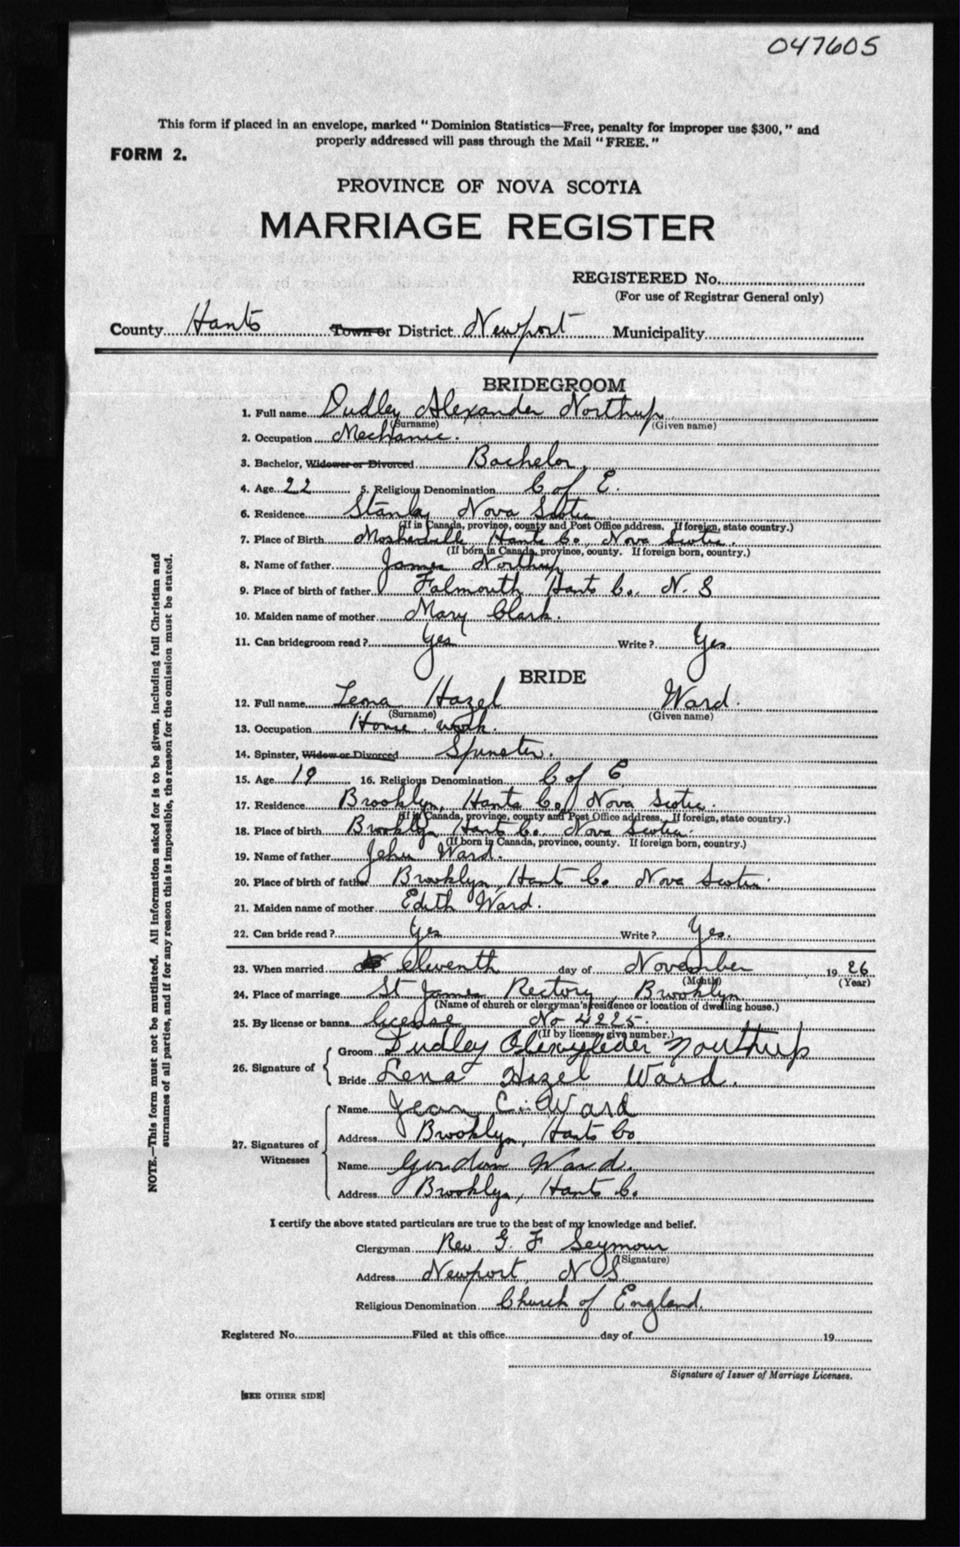 047605
This form if placed in an envelope, marked "Dominion Statistics—Free, penalty for improper use $300," and
properly addressed will pass through the Mail "FREE."
FORM 2.
PROVINCE OF NOVA SCOTIA
MARRIAGE REGISTER
REGISTERED No.
(For use of Registrar General only)
County Hants Town or District Newport Municipality
BRIDEGROOM
1. Full name Dudley Alexander Northup
(Surname) (Given name)
2. Occupation Mechanic.
3. Bachelor, Widower or Divorced Bachelor.
4. Age 22 5. Religious Denomination C of E.
6. Residence Stanley Nova Scotia
(If in Canada, province, county and Post Office address. If foreign, state country.)
7. Place of Birth Mosherville Hants Co., Nova Scotia.
(If born in Canada, province, county. If foreign born, country.)
8. Name of father James Northup
9. Place of birth of father Falmouth Hants Co. N. S
10. Maiden name of mother Mary Clark.
11. Can bridegroom read? Yes Write? Yes.
BRIDE
12. Full name Lena Hazel Ward.
(Surname) (Given name)
13. Occupation House work.
14. Spinster, Widow or Divorced Spinster.
15. Age 19 16. Religious Denomination C of E
17. Residence Brooklyn, Hants Co, Nova Scotia.
(If in Canada, province, county and Post Office address. If foreign, state country.)
18. Place of birth Brooklyn Hants Co. Nova Scotia.
(If born in Canada, province, county. If foreign born, country.)
19. Name of father John Ward.
20. Place of birth of father Brooklyn, Hants Co. Nova Scotia.
21. Maiden name of mother Edith Ward.
22. Can bride read? Yes Write? Yes.
23. When married Eleventh day of November 19 26
(Month) (Year)
24. Place of marriage St James Rectory, Brooklyn
(Name of church or clergyman's residence or location of dwelling house.)
25. By license or banns license No 4225.
(If by license give number.)
26. Signature of
Groom Dudley Northup
Bride Lena Hazel Ward.
27. Signatures of Witnesses
Name Jean C. Ward
Address Brooklyn, Hants Co
Name Gordon Ward.
Address Brooklyn, Hants Co.
I certify the above stated particulars are true to the best of my knowledge and belief.
Clergyman Rev. G. F Seymour
(Signature)
Address Newport, N S
Religious Denomination Church of England.
Registered No. Filed at this office day of 19
Signature of Issuer of Marriage Licenses.
[SEE OTHER SIDE]
NOTE.—This form must not be mutilated. All information asked for is to be given, including full Christian and
surnames of all parties, and if for any reason this is impossible, the reason for the omission must be stated.